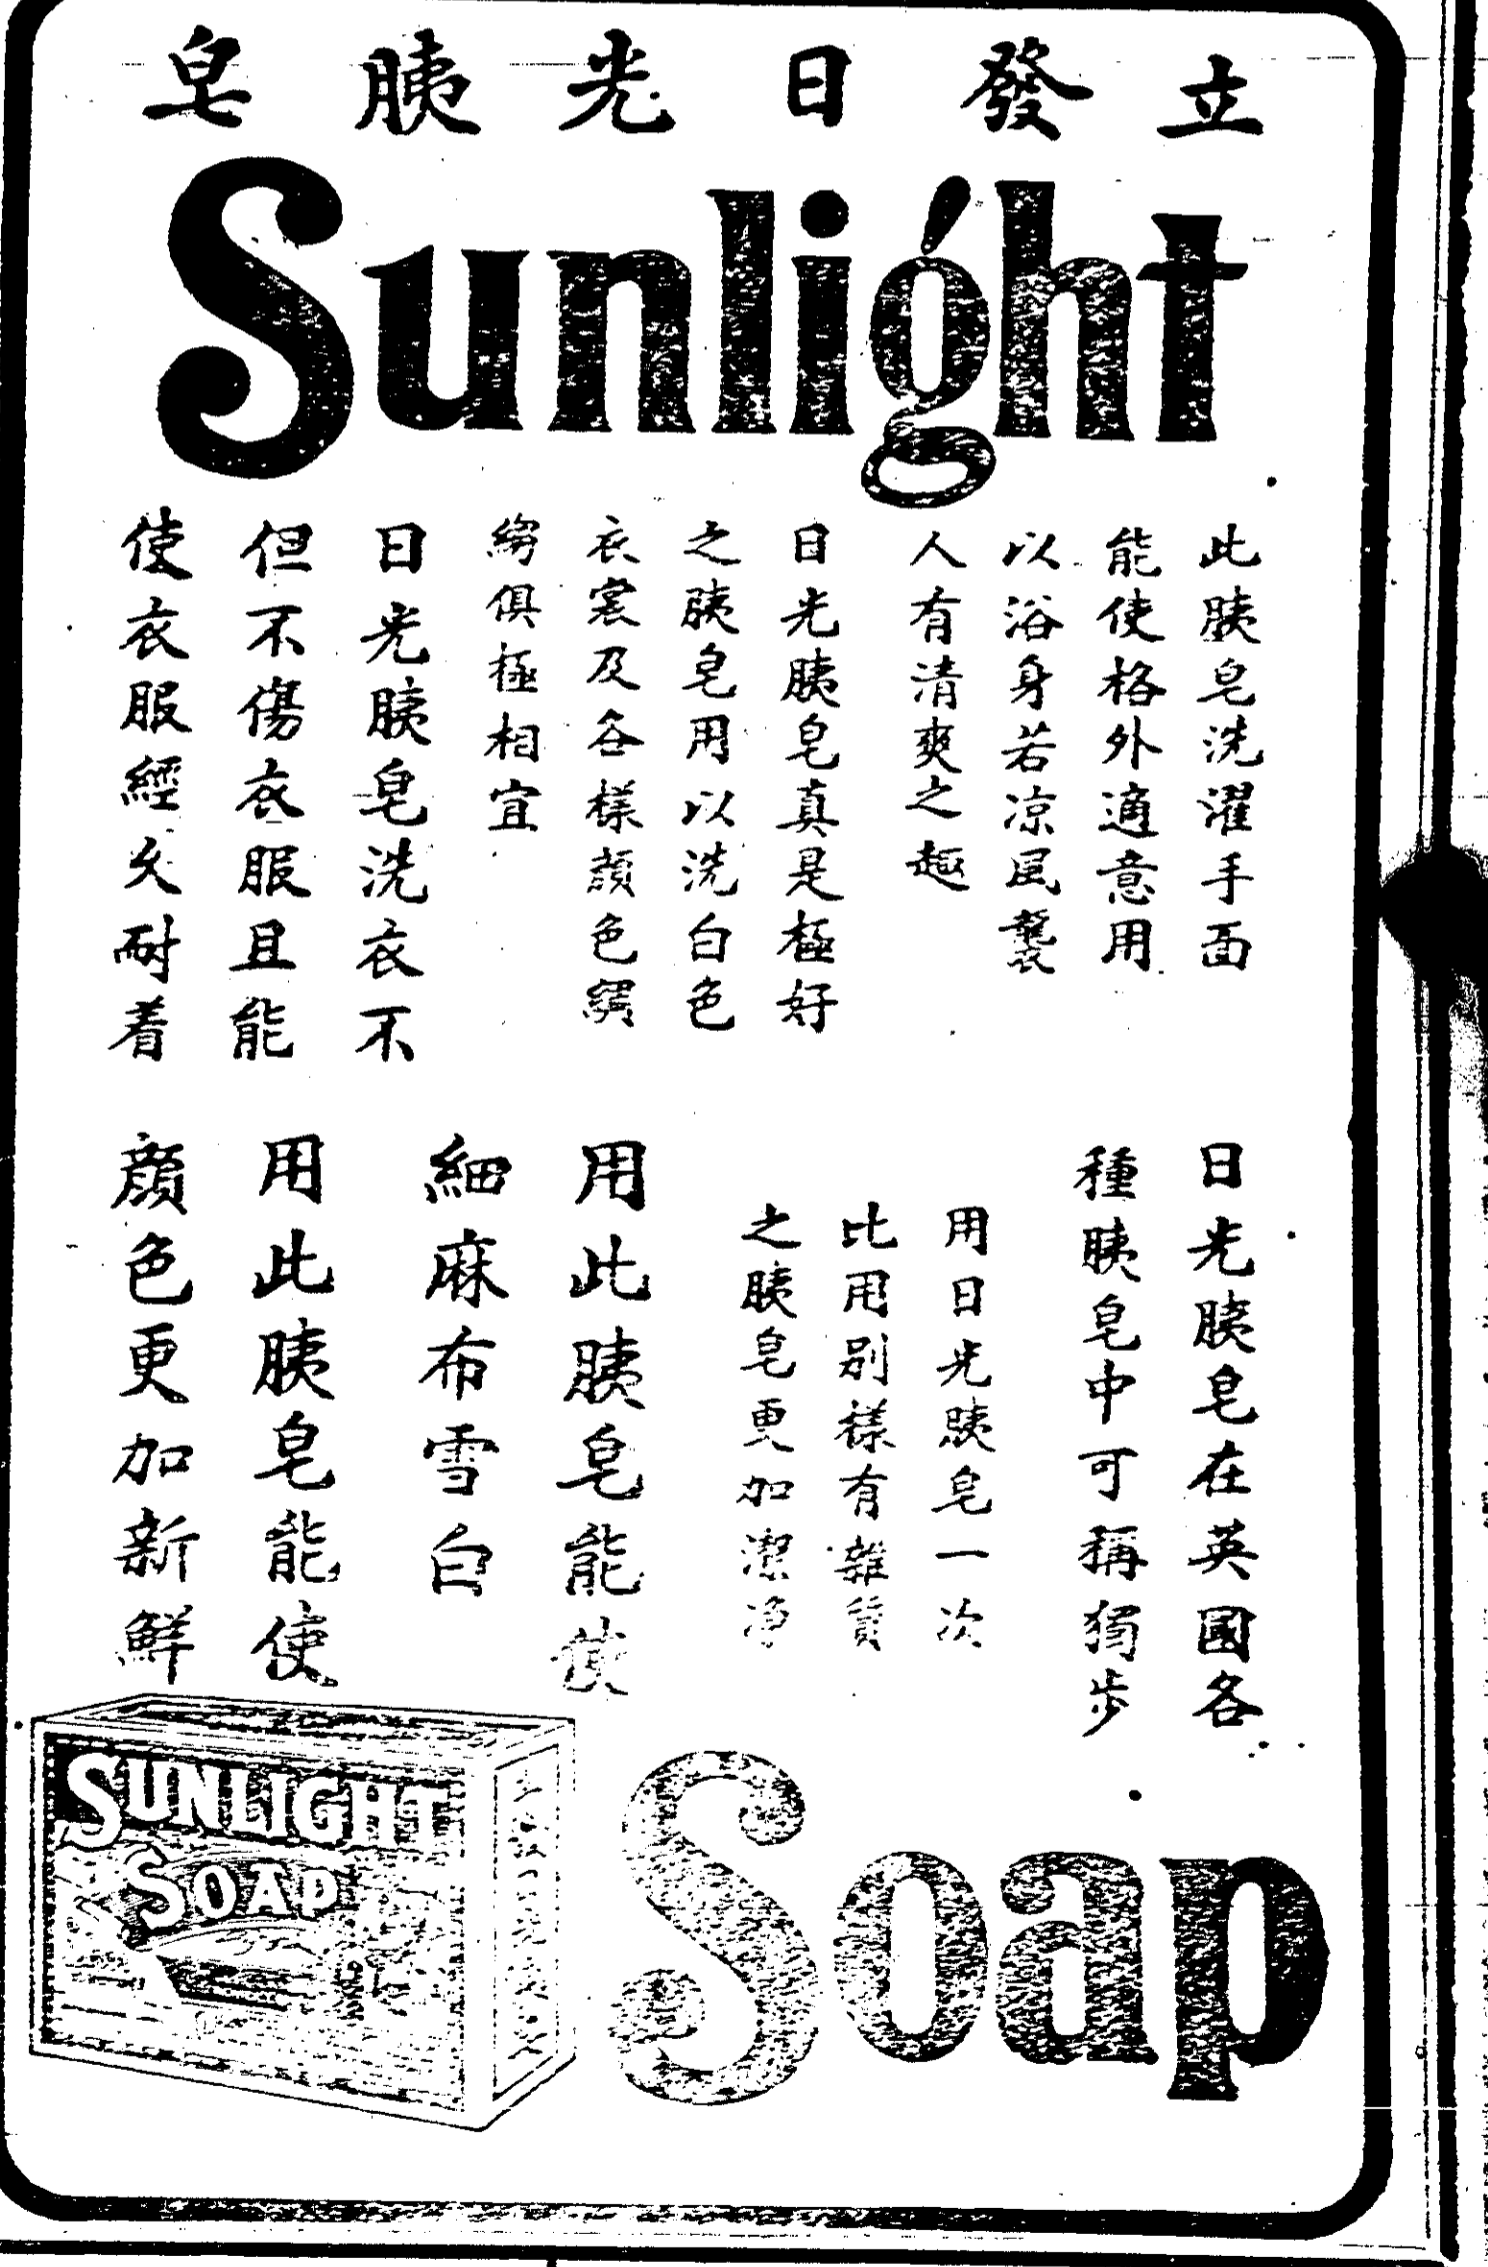 立發日光胰皂
Sunlight
此胰皂洗濯手面
能使格外適意用
以浴身若凉風襲
人有清爽之趣
日光胰皂真是極好
之胰皂用以洗白色
衣裳及各樣顏色綢
縐俱極相宜
日光胰皂洗衣不
但不傷衣服且能
使衣服經久耐着
日光胰皂在英國各
種胰皂中可稱獨步
用日光胰皂一次
比用別樣有雜質
之胰皂更加潔净
用此胰皂能使
細麻布雪白
用此胰皂能使
顏色更加新鮮
SUNLIGHT
SOAP
Soap